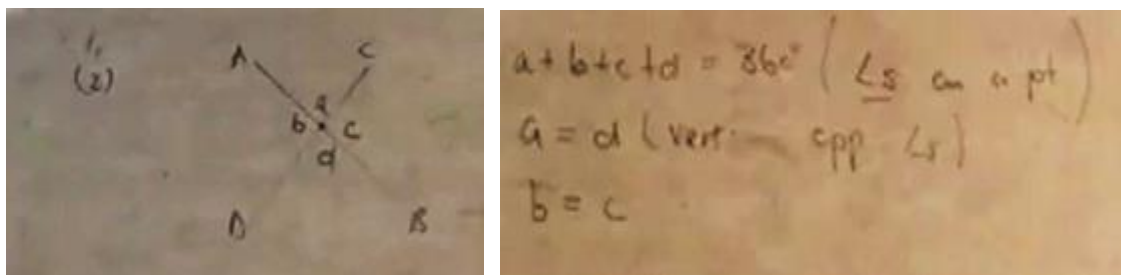 1.
(2)
A C
a
b c
d
D B
a+b+c+d = 360° (∠s on a pt)
a = d (vert. opp ∠s)
b = c